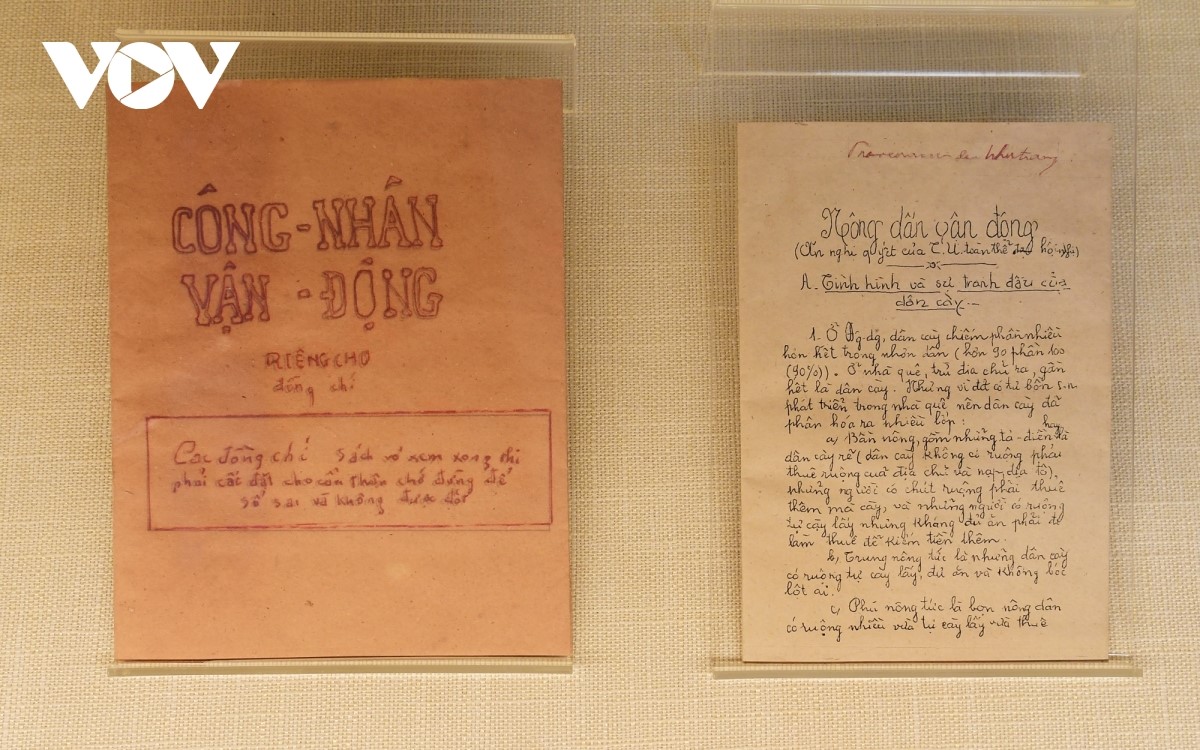 VOV
CÔNG-NHÂN
VẬN-ĐỘNG
RIÊNG CHO
đồng chí
Các đồng chí sách vở xem xong thì
phải cất đặt cho cẩn thận chớ đừng để
sơ sài và không được đốt
Nông dân vận động
(Án nghị quyết của T.Ư. toàn thể hội nghị)
A. Tình hình và sự tranh đấu của
dân cày.
1. Ở Đg-dg, dân cày chiếm phần nhiều
hơn hết trong nhân dân (hơn 90 phần 100
(90%)). Ở nhà quê, trừ địa chủ ra, gần
hết là dân cày. Nhưng vì đã có tư bổn s.n
phát triển trong nhà quê nên dân cày đã
phân hóa ra nhiều lớp:
a) Bần nông, gồm những tá-điền hay là
dân cày rẽ (dân cày không có ruộng phải
thuê ruộng của địa chủ và nạp địa tô),
những người có chút ruộng phải thuê
thêm mà cày, và những người có ruộng
tự cày lấy nhưng không đủ ăn phải đi
làm thuê để kiếm tiền thêm.
b) Trung nông tức là những dân cày
có ruộng tự cày lấy, đủ ăn và không bóc
lột ai.
c) Phú nông tức là bọn nông dân
có ruộng nhiều vừa tự cày lấy vừa thuê